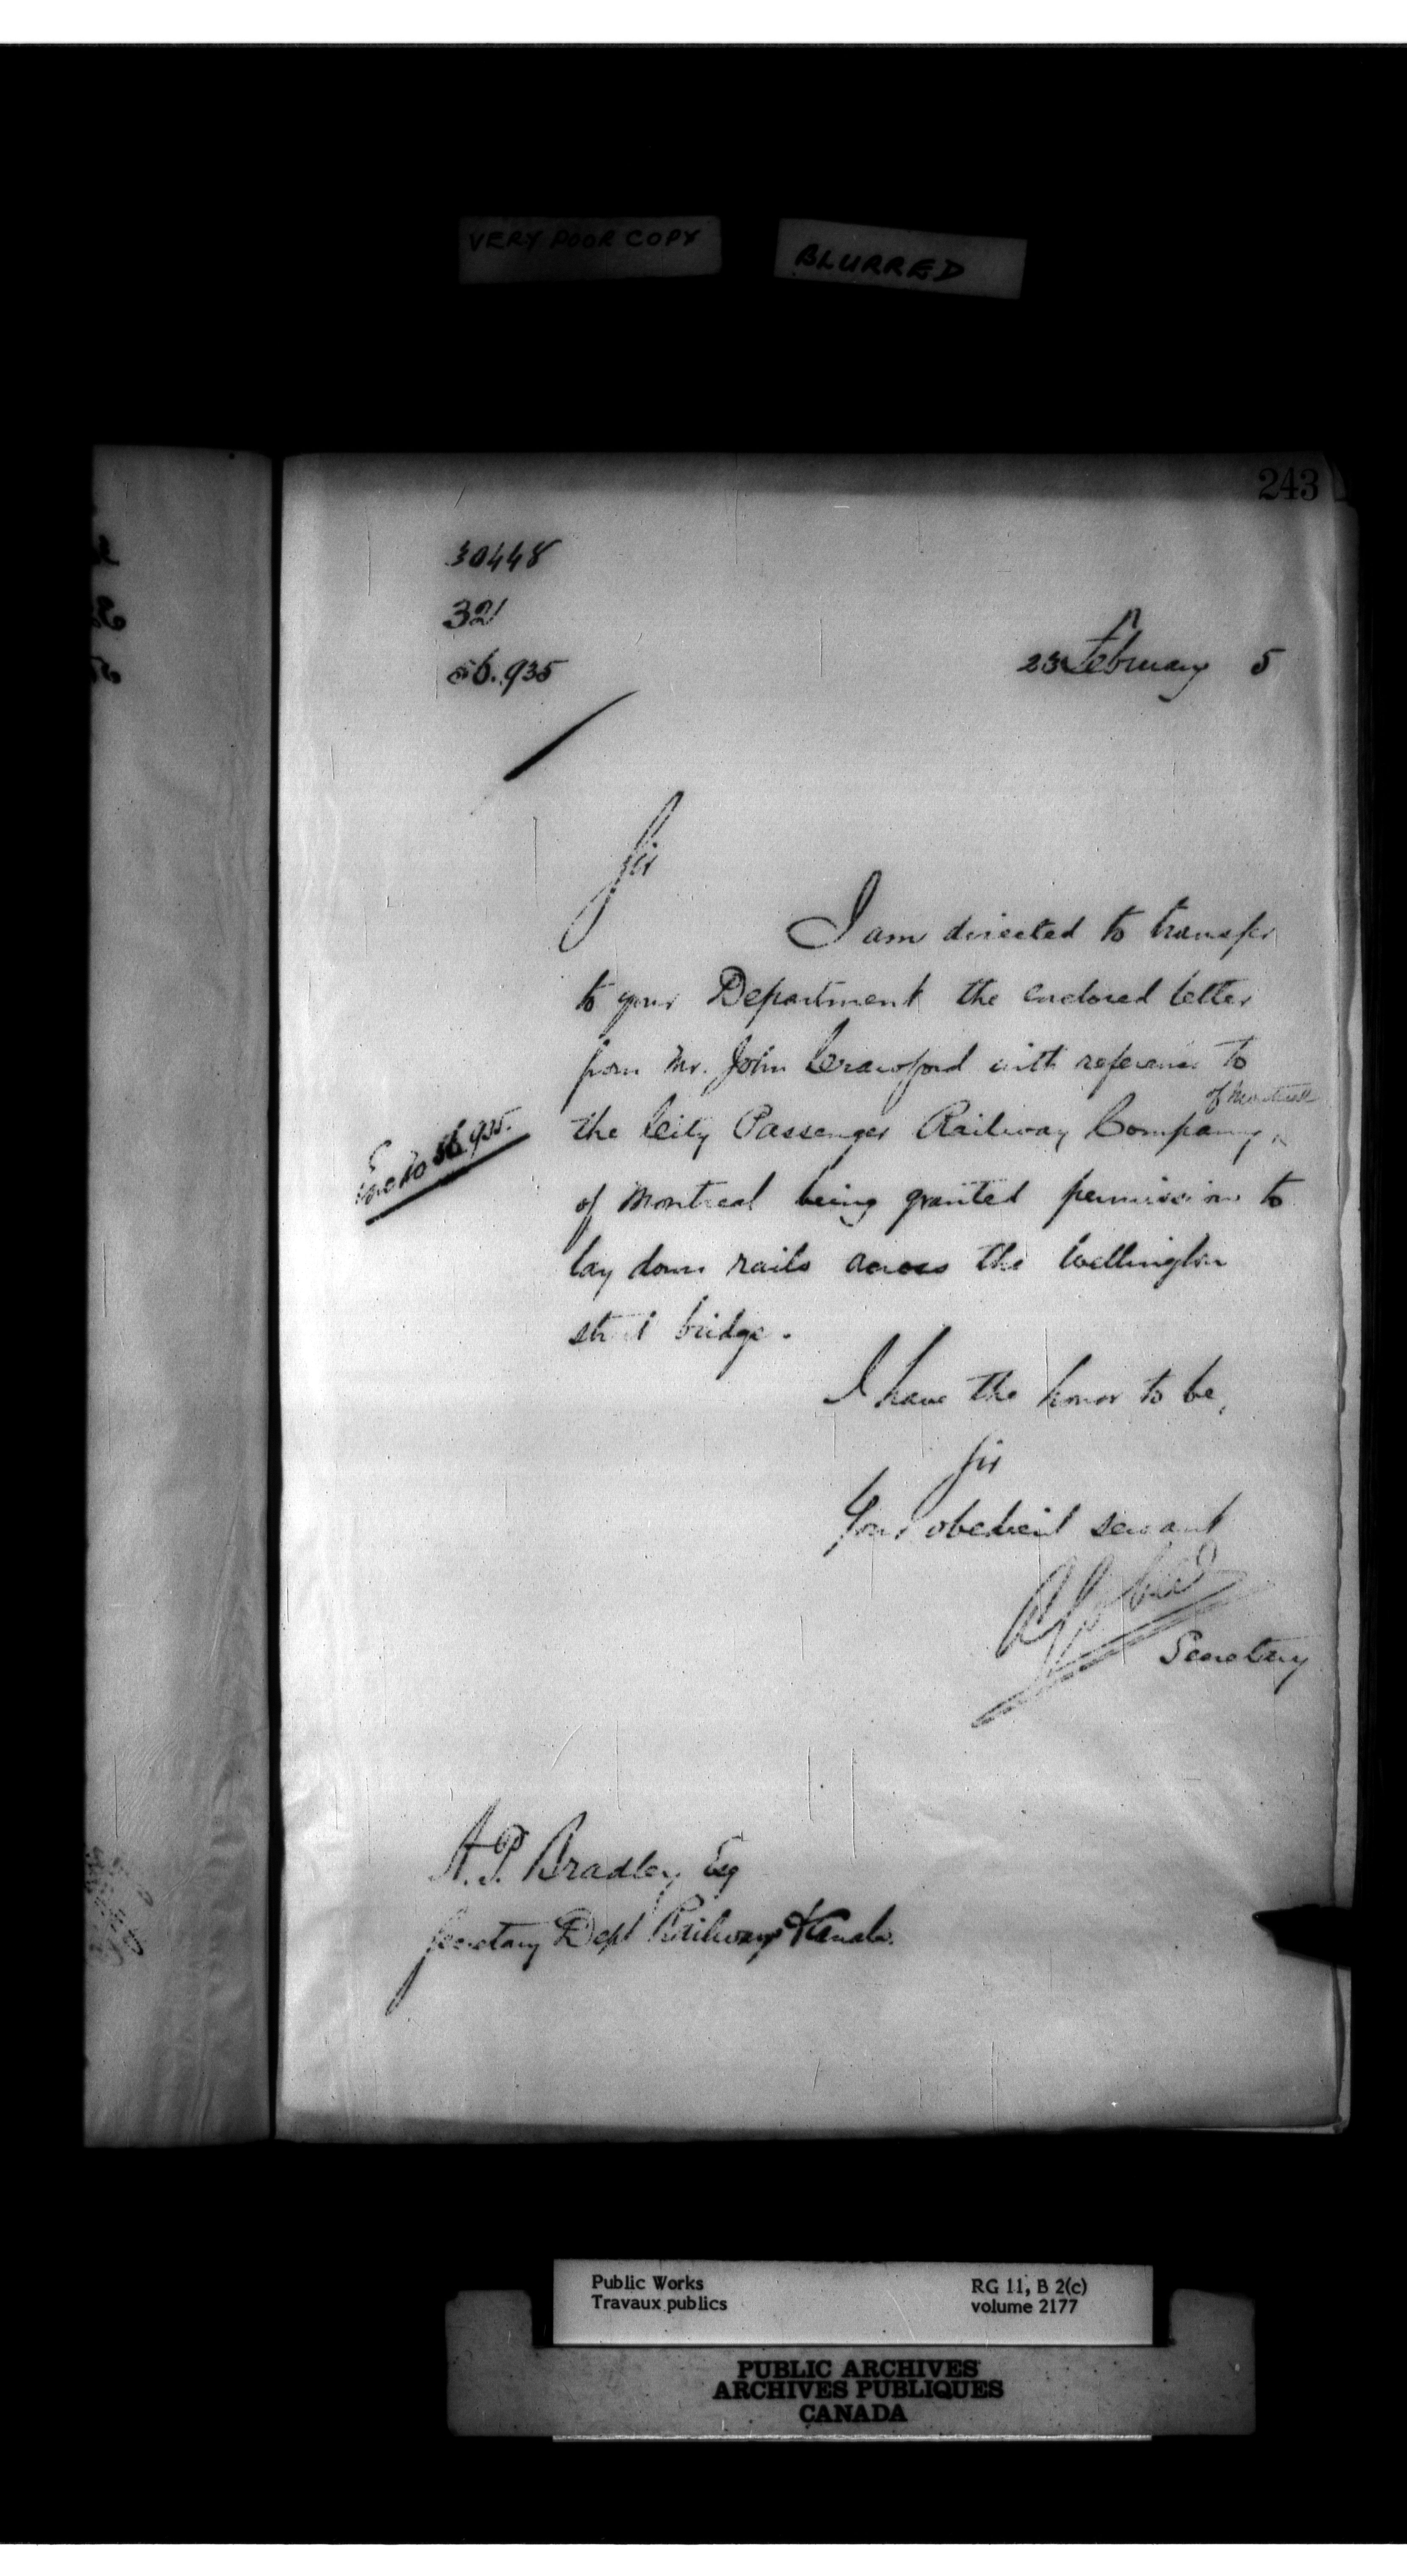 VERY POOR COPY
BLURRED
243
30448
32
56.935
23 February 5
Sir
I am directed to transfer
to your Department the enclosed letter
from Mr. John Crawford with reference to
of Montreal
the City Passenger Railway Company,
of Montreal being granted permission to
lay down rails across the Wellington
street bridge.
56,935.
I have the honor to be,
Sir
Your obedient servant
Secretary
A. P. Bradley Esq
Secretary Dept Railways & Canals.
Public Works
Travaux publics
RG 11, B 2(c)
volume 2177
PUBLIC ARCHIVES
ARCHIVES PUBLIQUES
CANADA